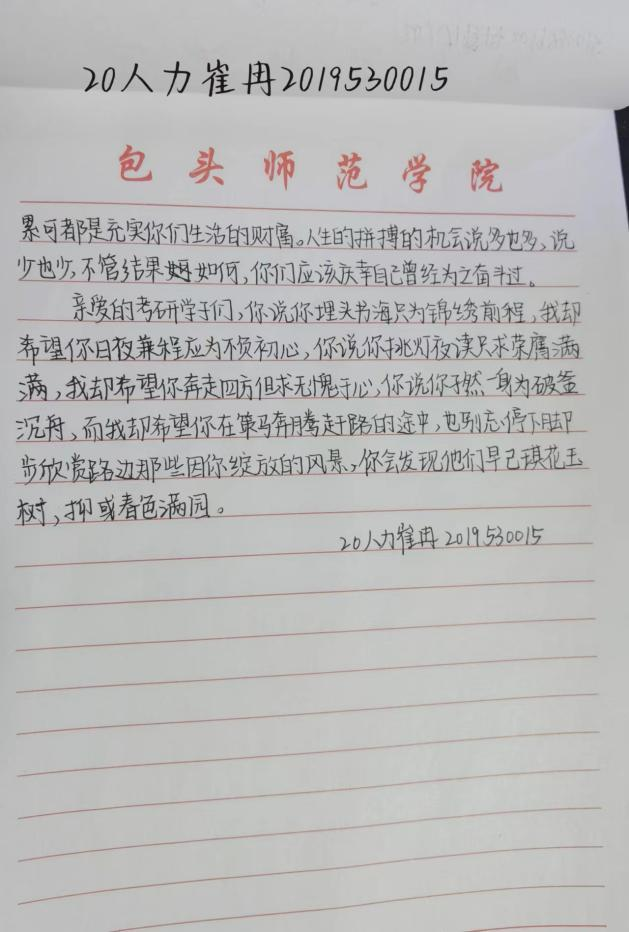 20人力崔冉2019530015
包头师范学院
累可都是充实你们生活的财富。人生的拼搏的机会说多也多,说
少也少,不管结果如何,你们应该庆幸自己曾经为之奋斗过。
亲爱的考研学子们,你说你埋头书海只为锦绣前程,我却
希望你日夜兼程应为不负初心,你说你挑灯夜读只求荣膺满
满,我却希望你奔走四方但求无愧于心,你说你孑然一身为破釜
沉舟,而我却希望你在策马奔腾赶路的途中,也别忘停下脚
步欣赏路边那些因你绽放的风景,你会发现他们早已琪花玉
树,抑或春色满园。
20人力崔冉2019530015